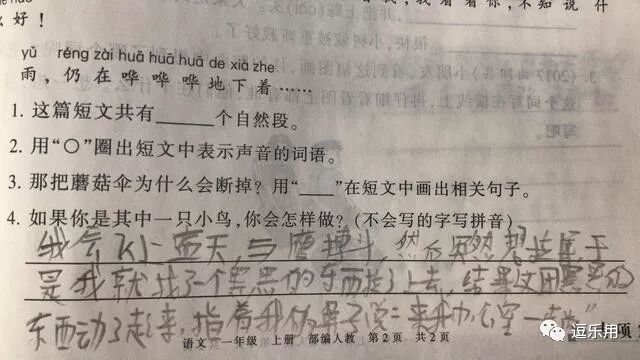 我看着你,不知说什
么好!
yǔ réng zài huā huā huā de xià zhe
雨,仍在哗哗哗地下着……
1. 这篇短文共有______个自然段。
2. 用“○”圈出短文中表示声音的词语。
3. 那把蘑菇伞为什么会断掉?用“____”在短文中画出相关句子。
4. 如果你是其中一只小鸟,你会怎样做?(不会写的字写拼音)
我会飞上蓝天,与鹰搏斗,然后突然
是我就找了一个黑黑的东西 了上去,结果这用黑黑的
东西动了起来,指着我的鼻子说:来办公室一
语文 一年级 上册 部编人教 第2页 共2页
逗乐用